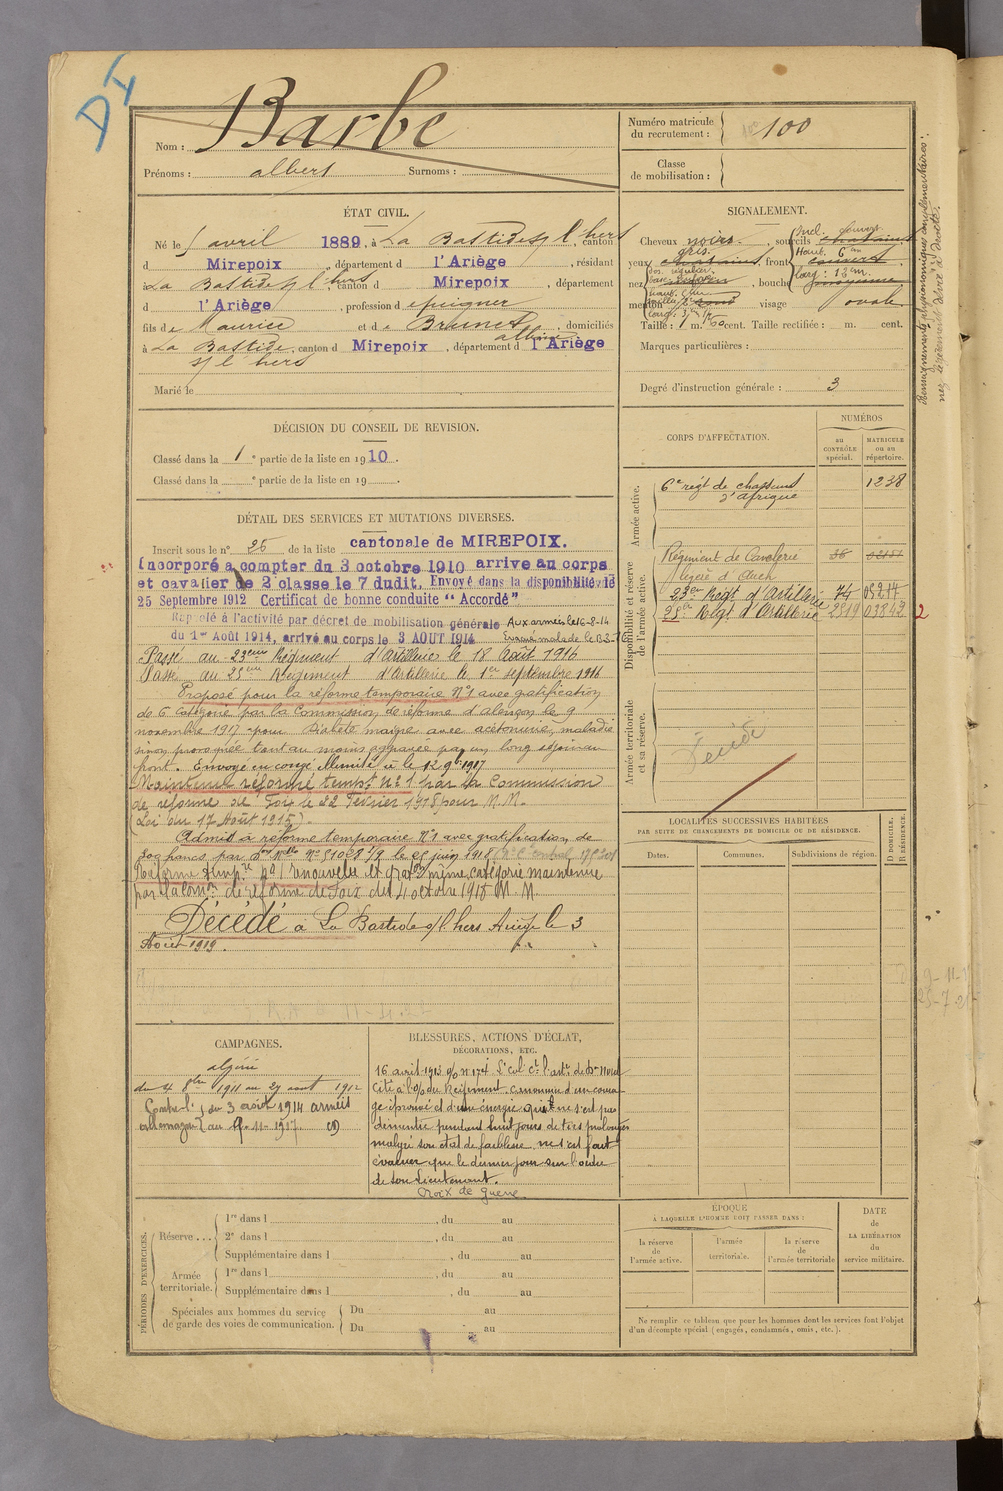 DI
Nom : Barbe
Prénoms : albert Surnoms :
Numéro matricule du recrutement : 100
Classe de mobilisation :
ÉTAT CIVIL.
Né le 5 avril 1889, à La Bastide s/ l'hers, canton
d Mirepoix, département d l'Ariège, résidant
à La Bastide s/ l'hers, canton d Mirepoix, département
d l'Ariège, profession d epeigner
fils de Maurice et de Brunet albine, domiciliés
à La Bastide s/ l'hers, canton d Mirepoix, département d l'Ariège
Marié le
SIGNALEMENT.
Cheveux noirs, sourcils chatains
yeux gris, front couvert
Incl. fuyant
Haut. 6 cm
Larg : 13 cm.
nez , bouche moyenne
menton rond visage ovale
Taille : 1 m. 60 cent. Taille rectifiée : m. cent.
Marques particulières :
Degré d'instruction générale : 3
Renseignements physionomiques complémentaires :
nez légèrement dévoré à droite.
DÉCISION DU CONSEIL DE REVISION.
Classé dans la 1e partie de la liste en 1910.
Classé dans la e partie de la liste en 19 .
CORPS D'AFFECTATION.
NUMÉROS
au CONTRÔLE spécial.
MATRICULE ou au répertoire.
Armée active.
6e régt de chasseurs d'afrique 1238
Disponibilité et réserve de l'armée active.
Régiment de Cavalerie légère d'Auch 36
23e Régt d'Artillerie 74 09217
25e Régt d'Artillerie 2519 03842 2
Armée territoriale et sa réserve.
Décédé
DÉTAIL DES SERVICES ET MUTATIONS DIVERSES.
Inscrit sous le n° 26 de la liste cantonale de MIREPOIX.
Incorporé à compter du 3 octobre 1910 arrivé au corps
et cavalier de 2e classe le 7 dudit. Envoyé dans la disponibilité le
25 Septembre 1912 Certificat de bonne conduite "Accordé"
Rappelé à l'activité par décret de mobilisation générale Aux armées le 16-8-14
du 1er Août 1914, arrivé au corps le 3 AOUT 1914 Evacué malade le
Passé au 23ème Régiment d'Artillerie le 18 Août 1916
Passé au 25ème Régiment d'Artillerie le 1er septembre 1916
Proposé pour la réforme temporaire N°1 avec gratification
de 6e Catégorie par la Commission de réforme d'alençon le 9
novembre 1917 pour Diabète maigre avec acétonurie, maladie
sinon provoquée tout au moins aggravée par un long séjour au
front. Envoyé en congé illimité le 12 9bre 1917
Maintenu réformé tempre n°1 par la Commission
de réforme de Foix le 22 Février 1918 pour M.M.
(Loi du 17 Août 1915).
Admis à réforme temporaire N°1 avec gratification de
Réforme tempre n°1 renouvelée et graton même catégorie maintenue
par la comon de réforme de Foix du 4 octobre 1918 M. M.
Décédé à La Bastide s/ l'hers Ariège le 3
Août 1919.
LOCALITÉS SUCCESSIVES HABITÉES
PAR SUITE DE CHANGEMENTS DE DOMICILE OU DE RÉSIDENCE.
Dates. Communes. Subdivisions de région.
D DOMICILE. R RÉSIDENCE.
CAMPAGNES.
algérie
du 4 8bre 1911 au 29 août 1912
Contre l' du 3 août 1914 armées
allemagne au 9-11-1917 (1)
BLESSURES, ACTIONS D'ÉCLAT,
DÉCORATIONS, ETC.
Cité à l'o/ du Régiment. Canonnier d'un coura-
ge éprouvé et d'une énergie qui ne s'est pas
démentie pendant huit jours de tirs prolongés
malgré son état de faiblesse, ne s'est fait
évacuer que le dernier jour sur l'ordre
de son Lieutenant.
Croix de guerre
PÉRIODES D'EXERCICES.
Réserve... 1re dans l , du au
2e dans l , du au
Supplémentaire dans l , du au
Armée territoriale. 1re dans l , du au
Supplémentaire dans l , du au
Spéciales aux hommes du service de garde des voies de communication. Du au
Du au
ÉPOQUE
À LAQUELLE L'HOMME DOIT PASSER DANS :
la réserve de l'armée active.
l'armée territoriale.
la réserve de l'armée territoriale
DATE de LA LIBÉRATION du service militaire.
Ne remplir ce tableau que pour les hommes dont les services font l'objet
d'un décompte spécial (engagés, condamnés, omis, etc.).